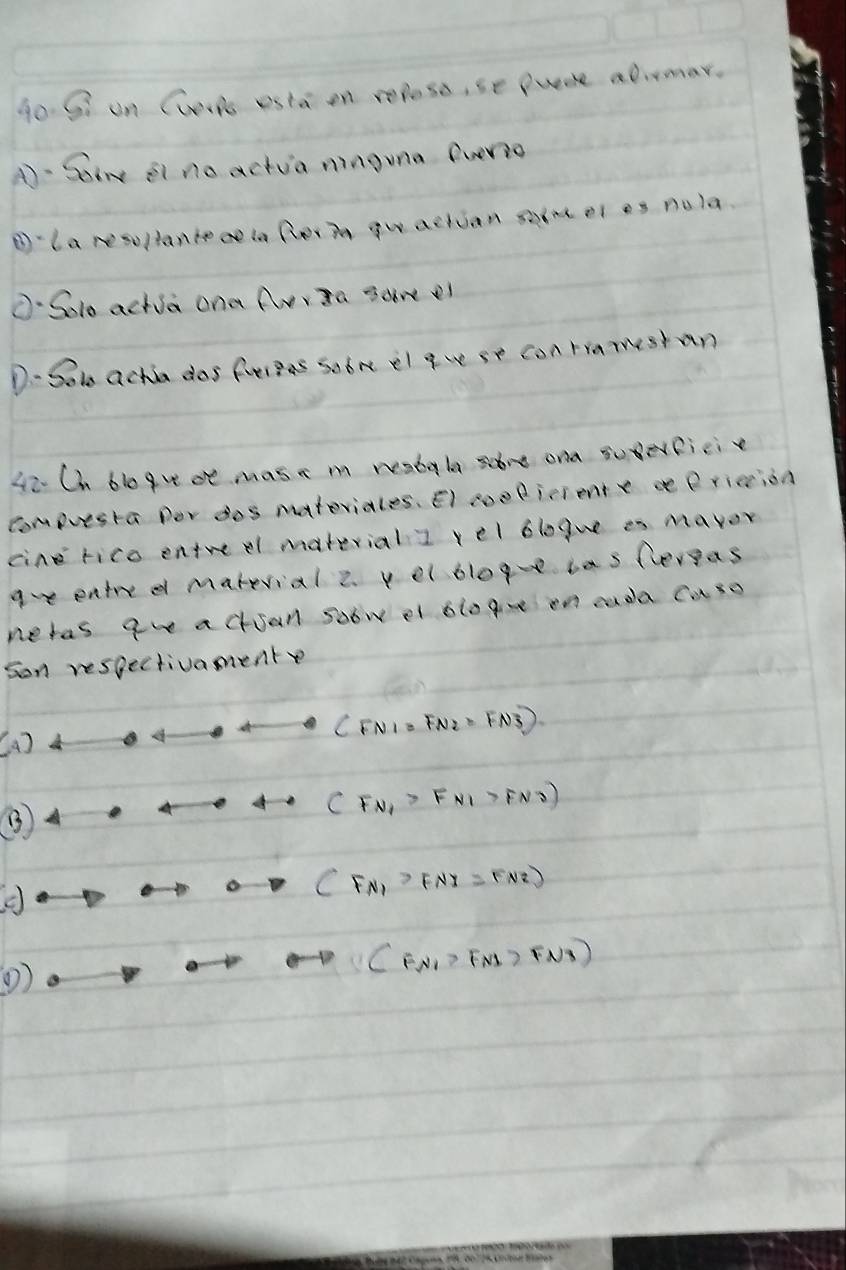 40. Si un Cuerpo está en reposo, se puede afirmar.
A)- Sobre él no actúa ninguna fuerza
B)- La resultante de la fuerza que actúan sobre el es nula.
C)- Solo actúa una fuerza sobre el
D)- Solo actúa dos fuerzas sobre él que se contrarrestan
42- Un bloque de masa m resbala sobre una superficie
compuesta por dos materiales. El coeficiente de fricción
cinético entre el material 1 y el bloque es mayor
que entre el material 2. y el bloque. Las fuerzas
netas que actúan sobre el bloque en cada caso
son respectivamente
(A) (FN1 = FN2 = FN3).
(B) (FN1 > FN1 > FN3)
C) (FN1 > FN2 = FN2)
D) (FN1 > FN2 > FN3)